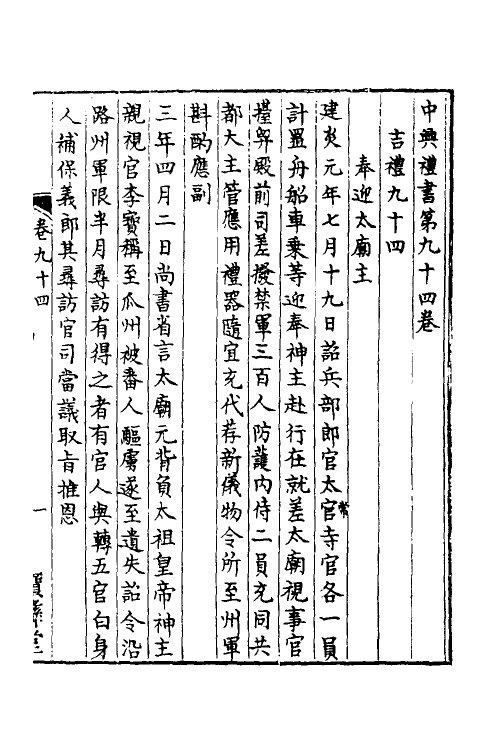 中興禮書第九十四卷
吉禮九十四
奉迎太廟主
建炎元年七月十九日詔兵部郎官太官寺官各一員
常
計置舟船車乗等迎奉神主赴行在就差太廟視事官
擡舁殿前司差撥禁軍三百人防護内侍二員充同共
都大主管應用禮器隨宜充代荐新儀物令所至州軍
斟酌應副
三年四月二日尚書省言太廟元背負太祖皇帝神主
親視官李寳稱至瓜州被番人驅虜遂至遺失詔令沿
路州軍限半月尋訪有得之者有官人與轉五官白身
人補保義郎其尋訪官司當議取旨推恩
卷九十四
一